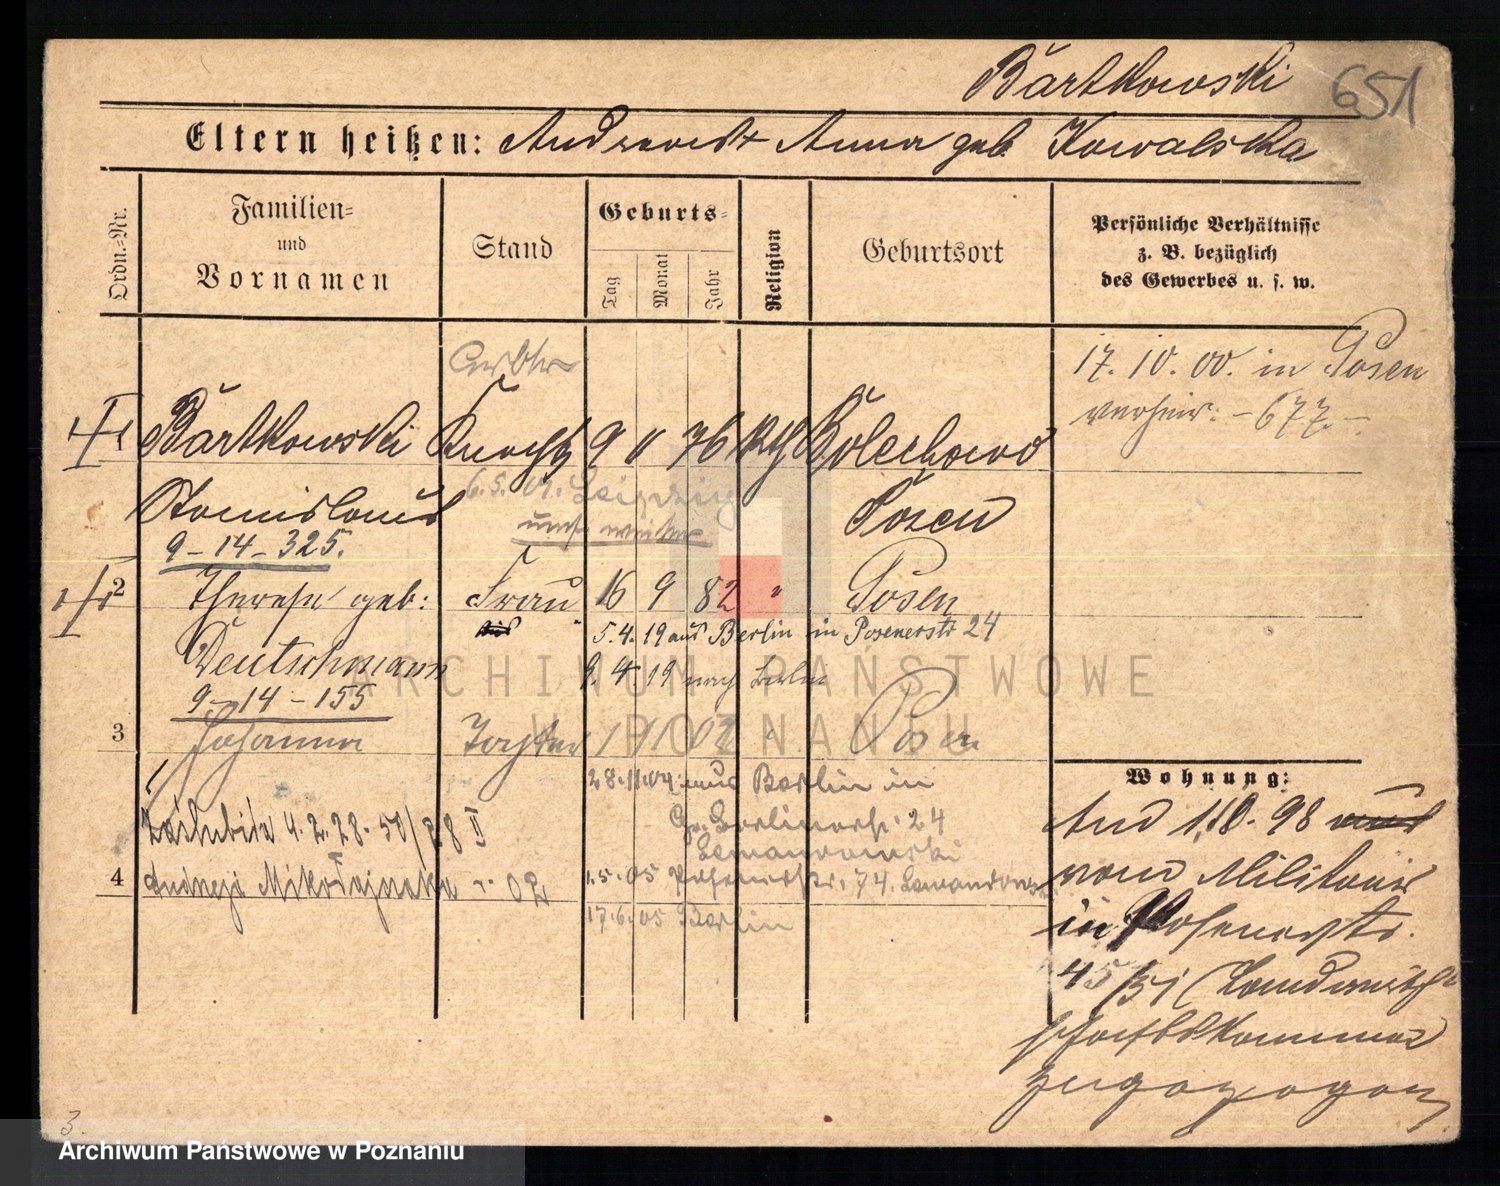 Bartkowski 651
Eltern heißen: Andreas u. Anna geb. Kowalska
Ordn.=Nr.
Familien=
und
Vornamen
Stand
Geburts=
Tag
Monat
Jahr
Religion
Geburtsort
Persönliche Verhältnisse
z. B. bezüglich
des Gewerbes u. s. w.
17. 10. 00. in Posen
verheir: - 677. -
1 Bartkowski Knecht 9 11 76 kth
Stanislaus
Posen
6. 5. 01. Leipzig
9 - 14 - 325.
2 Therese geb: Frau 16 9 82 " Posen
5. 4. 19 aus Berlin in Posenerstr 24
Deutschmann
9. 4. 19 nach Berlin
9 - 14 - 155
3 Johanna Tochter 1 1 02 " Posen
28. 11. 04 aus Berlin in
Gr. Berlinerstr. 24
Lewandowski
Zaślubiła 4. 2. 28. 50/28 II
4 Andrzeja Mikołajczaka
1. 5. 05 Posenerstr. 74.
17. 6. 05 Berlin
Wohnung:
And 1.10. 98
vom Militair
in Posenerstr.
45/51 (Landwirth
schaftskammer
zugezogen
3.
ARCHIWUM PAŃSTWOWE
W POZNANIU
Archiwum Państwowe w Poznaniu